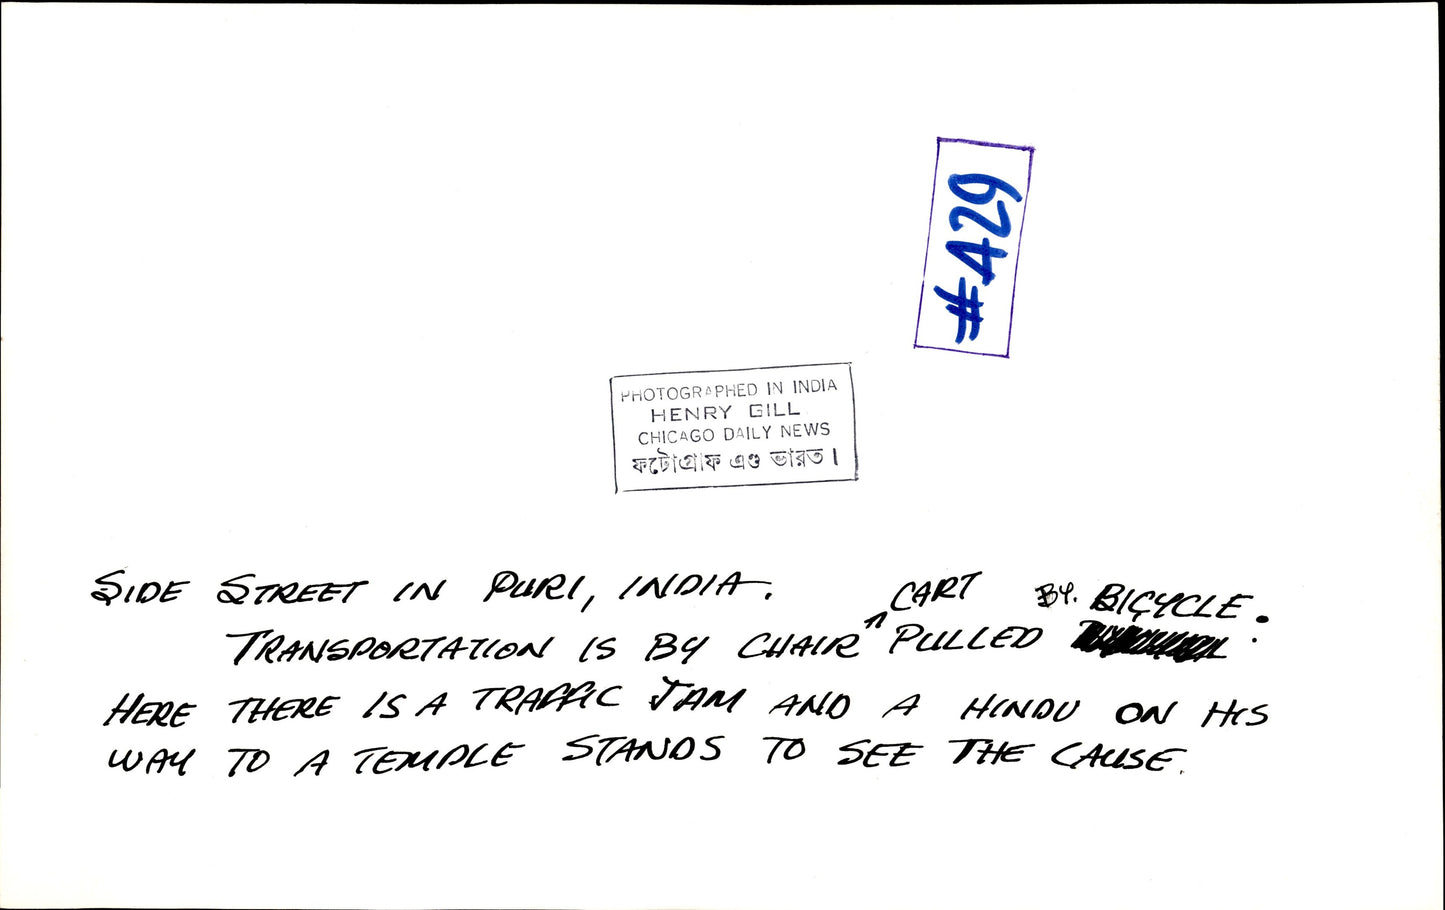 #A29
PHOTOGRAPHED IN INDIA
HENRY GILL
CHICAGO DAILY NEWS
ফটোগ্রাফ এণ্ড ভারত।
SIDE STREET IN PURI, INDIA.
TRANSPORTATION IS BY CHAIR ^ CART PULLED BY. BICYCLE.
HERE THERE IS A TRAFFIC JAM AND A HINDU ON HIS
WAY TO A TEMPLE STANDS TO SEE THE CAUSE.